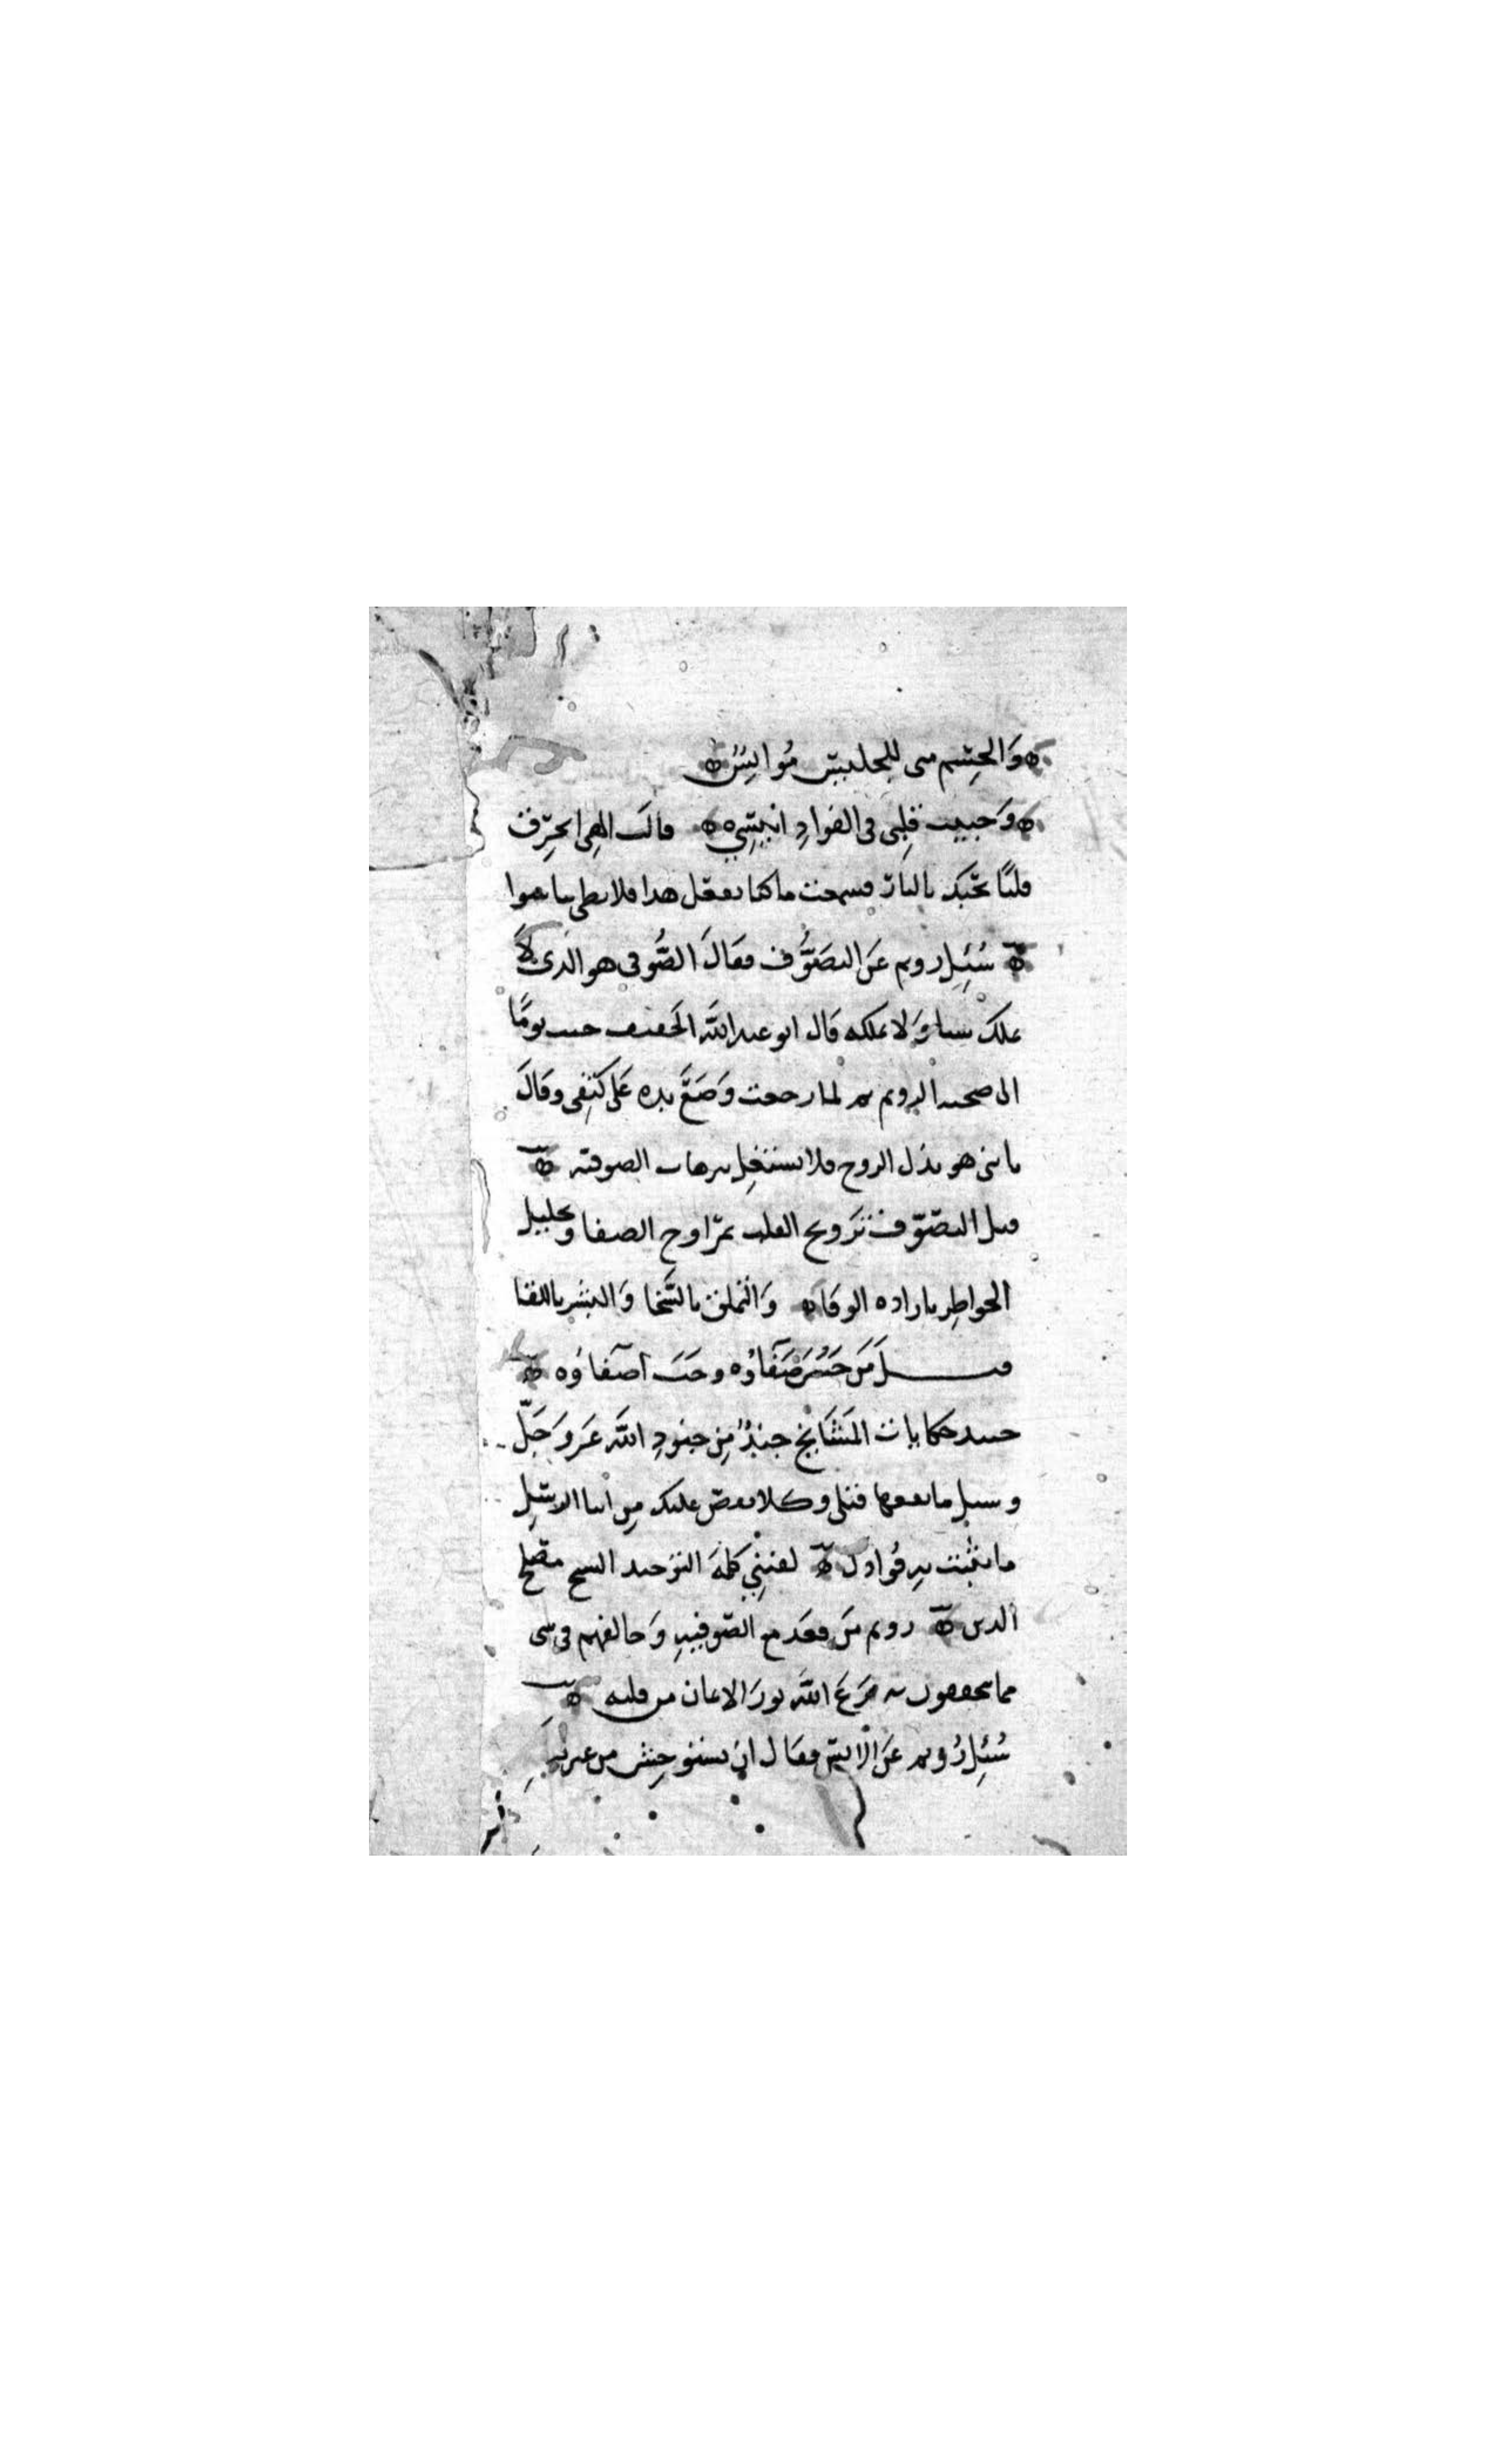 والجسم مني للجليس موانس
وحبيب قلبي في الفواد انيسي قالت الهي اتحرق
قلبا يحبك بالنار فسمعت ما كنا نفعل هدا فلا تظني بنا
سُئِل رويم عن التصوُّف فقالَ الصُّوفي هو الدى لا
يملك شيا وَلا يملكه قال ابو عبد الله الخفيف يومًا
الى رويم لما رجعت وَضَعَ يده عَلى كتِفى وقالَ
يا بنى هو بذل الروح فلا تشتغِل بترهات الصوفيه
قيل التصوّف تَرويح القلب بمرَاوح الصفا وتجليل
الخواطِر بارادة الوفا وَالتخلق بالسَّخا وَالبشر باللقا
قيل مَن حَسُنَ صَفاؤه وجَبَ اصفاؤه
حكايات المَشَايخ جندٌ مِن جنودِ الله عَز وَجَلّ
وسيل ما نفعها فتلى وكلا نقصّ عليك مِن انبا الرسل
ما نثبت به فُوادك لقننِي كلمة التوحيد الشيخ مصلح
الدين رويم مَن قعَد مع الصّوفيه وَخالفهم فى شى
مما يتحققون به نزعَ الله نورَ الايمان من قلبه
سُئِل رُويم عَن الانس فقال ان تستوحِش من غير الله